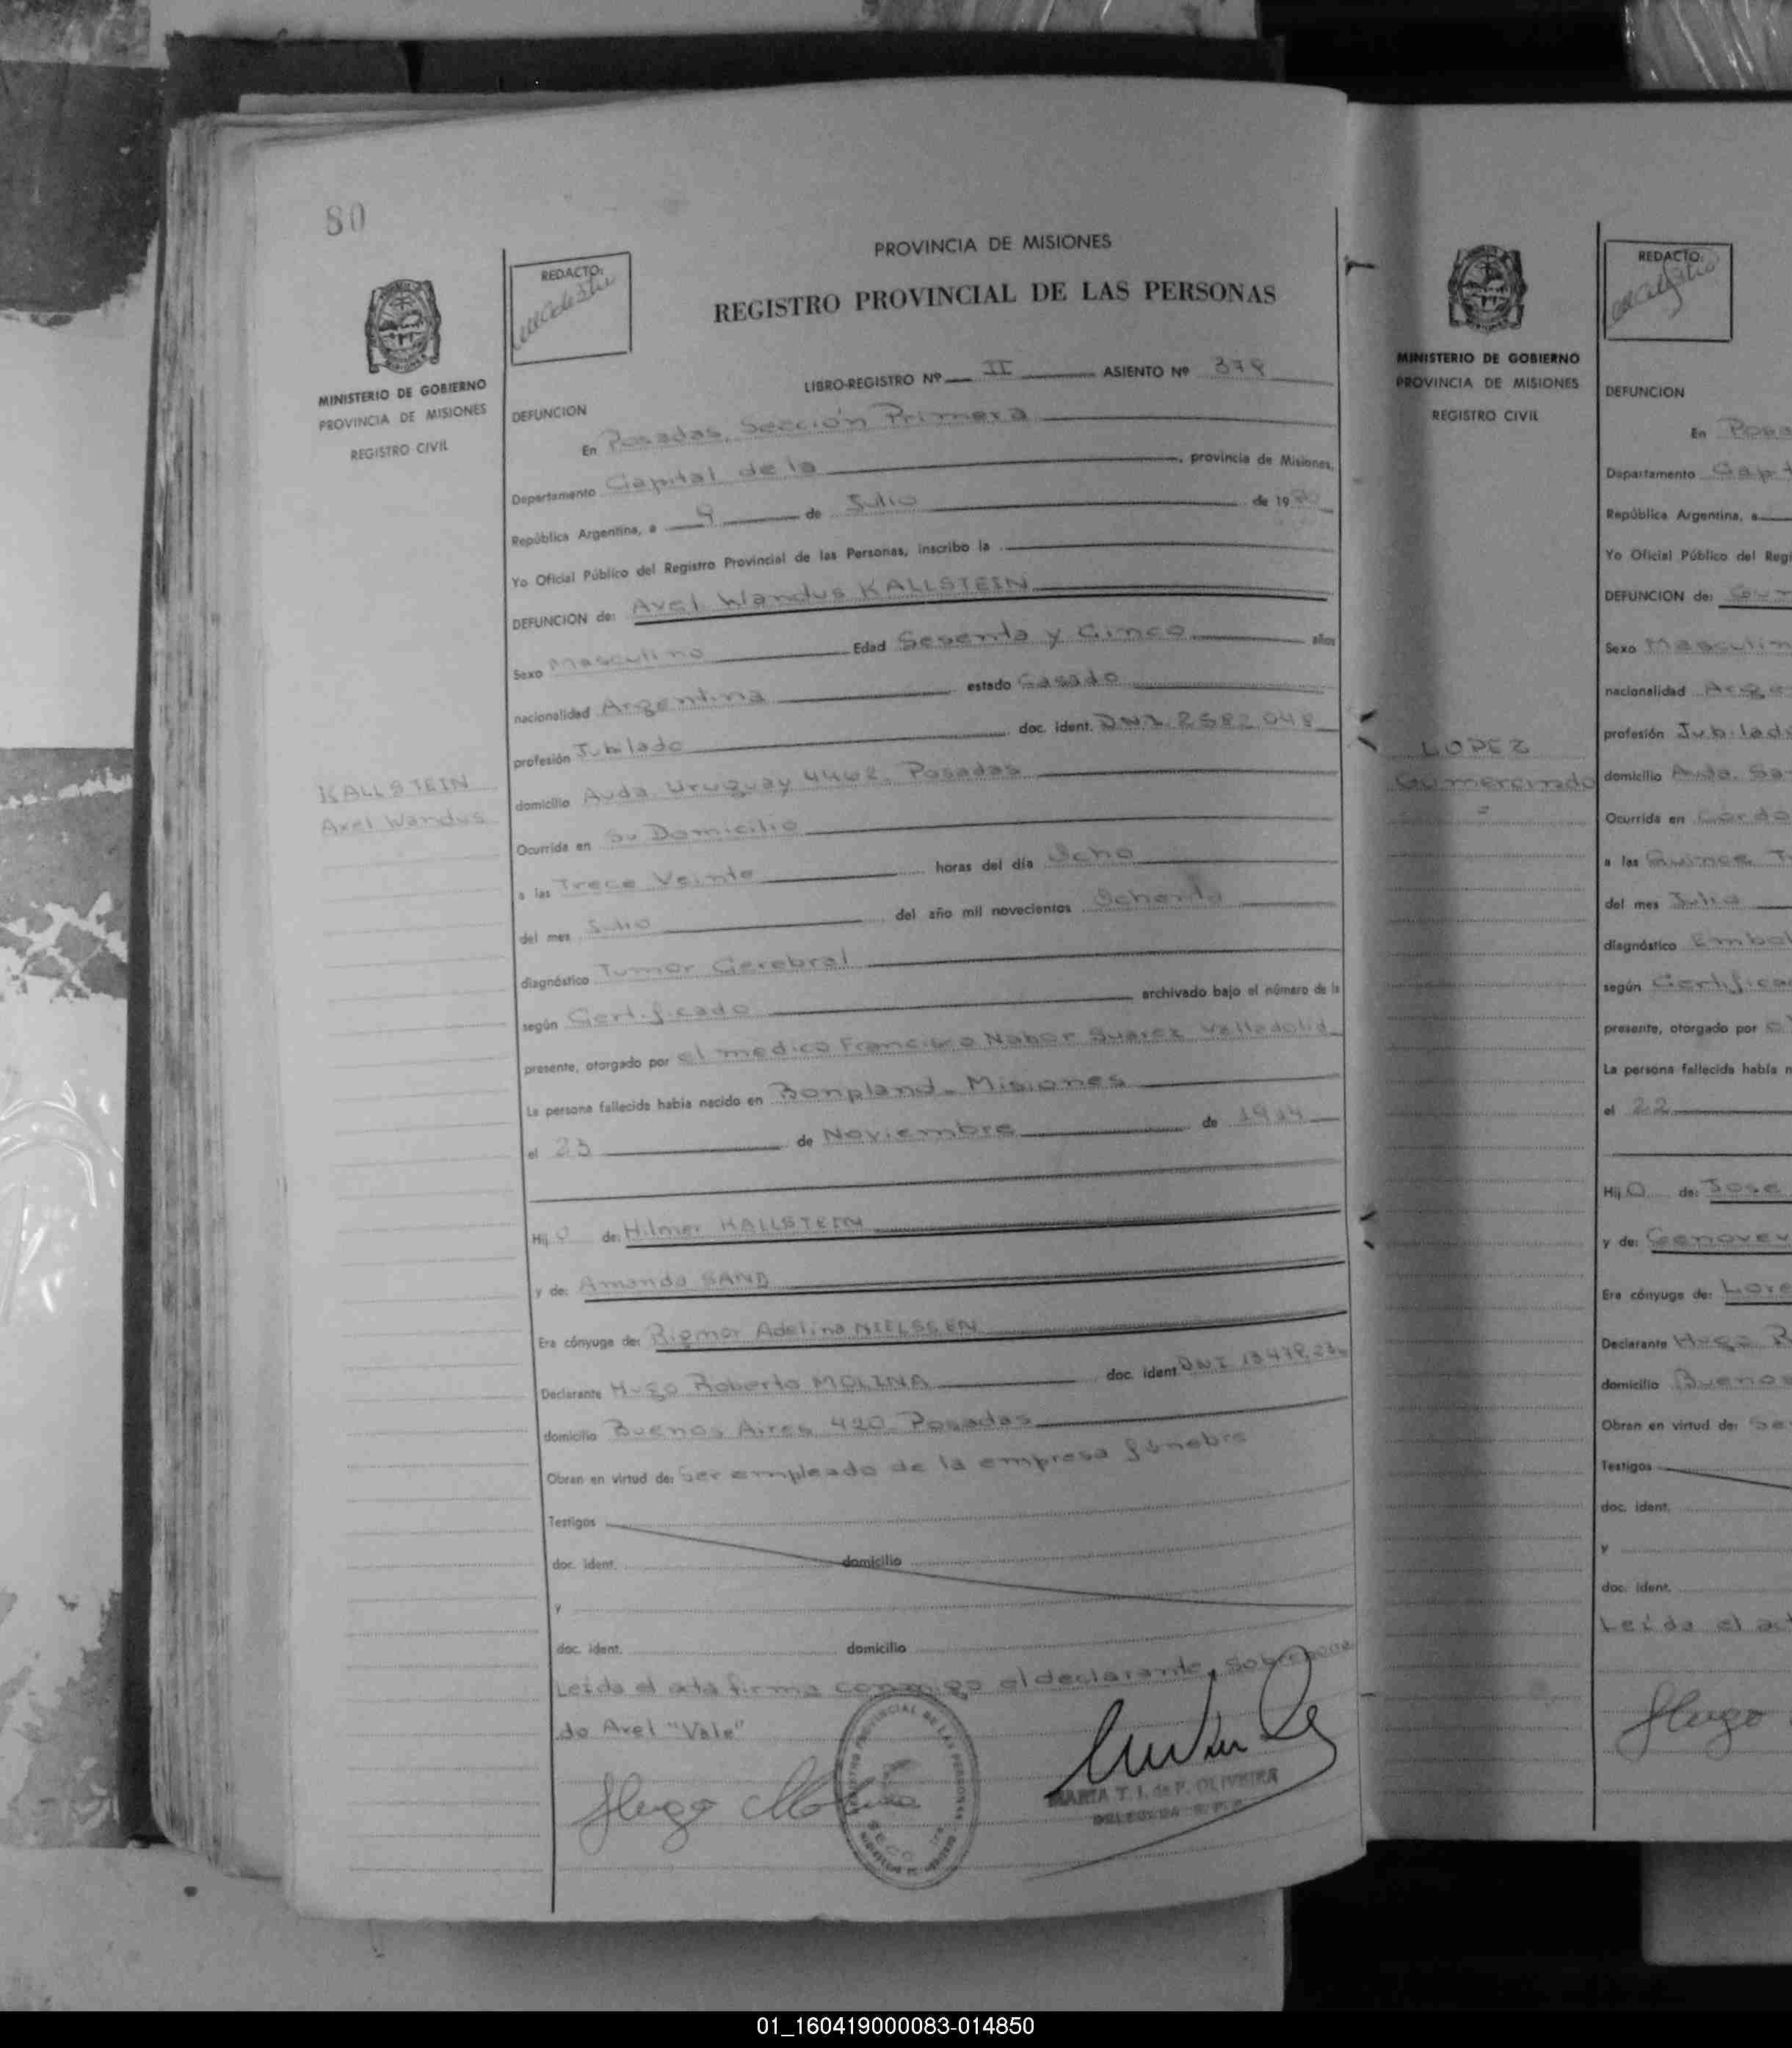 80
MINISTERIO DE GOBIERNO
PROVINCIA DE MISIONES
REGISTRO CIVIL
KALLSTEIN
Axel Wandus
REDACTO:
PROVINCIA DE MISIONES
REGISTRO PROVINCIAL DE LAS PERSONAS
LIBRO-REGISTRO Nº II ASIENTO Nº 378
DEFUNCION
En Posadas, Sección Primera
Departamento Capital de la, provincia de Misiones,
República Argentina, a 9 de Julio de 1980
Yo Oficial Público del Registro Provincial de las Personas, inscribo la
DEFUNCION de: Axel Wandus KALLSTEIN
Sexo Masculino Edad Sesenta y Cinco años
nacionalidad Argentina estado Casado
profesión Jubilado doc. ident. DNI. 2582.048
domicilio Avda. Uruguay 4462. Posadas
Ocurrida en Su Domicilio
a las Trece Veinte horas del día Ocho
del mes Julio del año mil novecientos Ochenta
diagnóstico Tumor Cerebral
según Certificado archivado bajo el número de la
presente, otorgado por el medico Francisco Nabor Suarez Valladolid
La persona fallecida había nacido en Bonpland - Misiones
el 23 de Noviembre de 1914
Hijo de: Hilmer KALLSTEIN
y de: Amanda SAND
Era cónyuge de: Rigmor Adelina NIELSSEN
Declarante Hugo Roberto MOLINA doc. ident. DNI 13.478.
domicilio Buenos Aires 420 Posadas
Obran en virtud de: Ser empleado de la empresa fúnebre
Testigos
doc. ident. domicilio
y
doc. ident. domicilio
Leída el acta firma conmigo el declarante, sobrepone
do Axel "Vale"
Hugo Molina
REGISTRO PROVINCIAL DE LAS PERSONAS
MARIA T. I. de P. OLIVEIRA
DELEGADA R. P. P.
MINISTERIO DE GOBIERNO
PROVINCIA DE MISIONES
REGISTRO CIVIL
LOPEZ
Gumercindo
=
REDACTO:
DEFUNCION
En Posa
Departamento Capit
República Argentina, a
Yo Oficial Público del Regi
DEFUNCION de: Gum
Sexo Masculin
nacionalidad Arge
profesión Jubilado
domicilio Avda. Sa
Ocurrida en Cordo
a las Quince T
del mes Julio
diagnóstico Embol
según Certifica
presente, otorgado por el
La persona fallecida había n
el 22
Hijo de: Jose
y de: Genovev
Era cónyuge de: Lore
Declarante Hugo R
domicilio Buenos
Obran en virtud de: Se
Testigos
doc. ident.
y
doc. ident.
Leída el act
Hugo
01_160419000083-014850